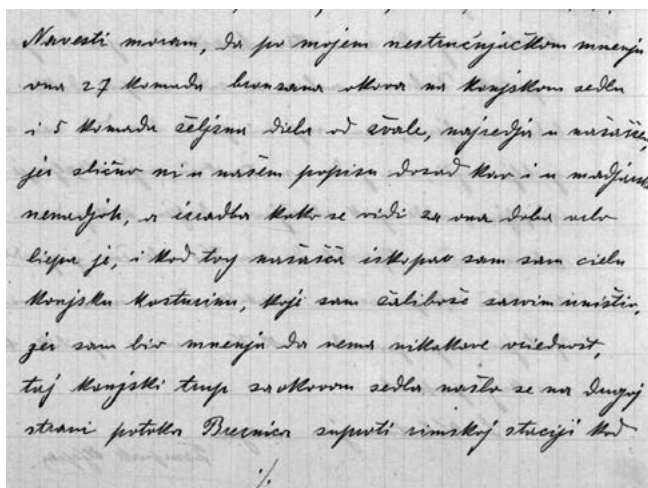 Navesti moram, da po mojem nestručnjačkom mnenju
ona 27 komada bronzana okova na konjskom sedlu
i 5 komada željezna diela od žvale, najredja u našašće,
jer slično ni u našem popisu dosad kao i u madjarsk
nenadjoh, a izradba kako se vidi za ona doba vrlo
liepa je, i kod tog našašća iskopao sam sam cielu
konjsku kosturinu, koju sam žalibože sasvim uništio,
jer sam bio mnenja da nema nikakove vriednost,
taj konjski trup saokovom sedla našlo se na drugoj
strani potoka Breznica suproti rimskoj staciji kod
./.